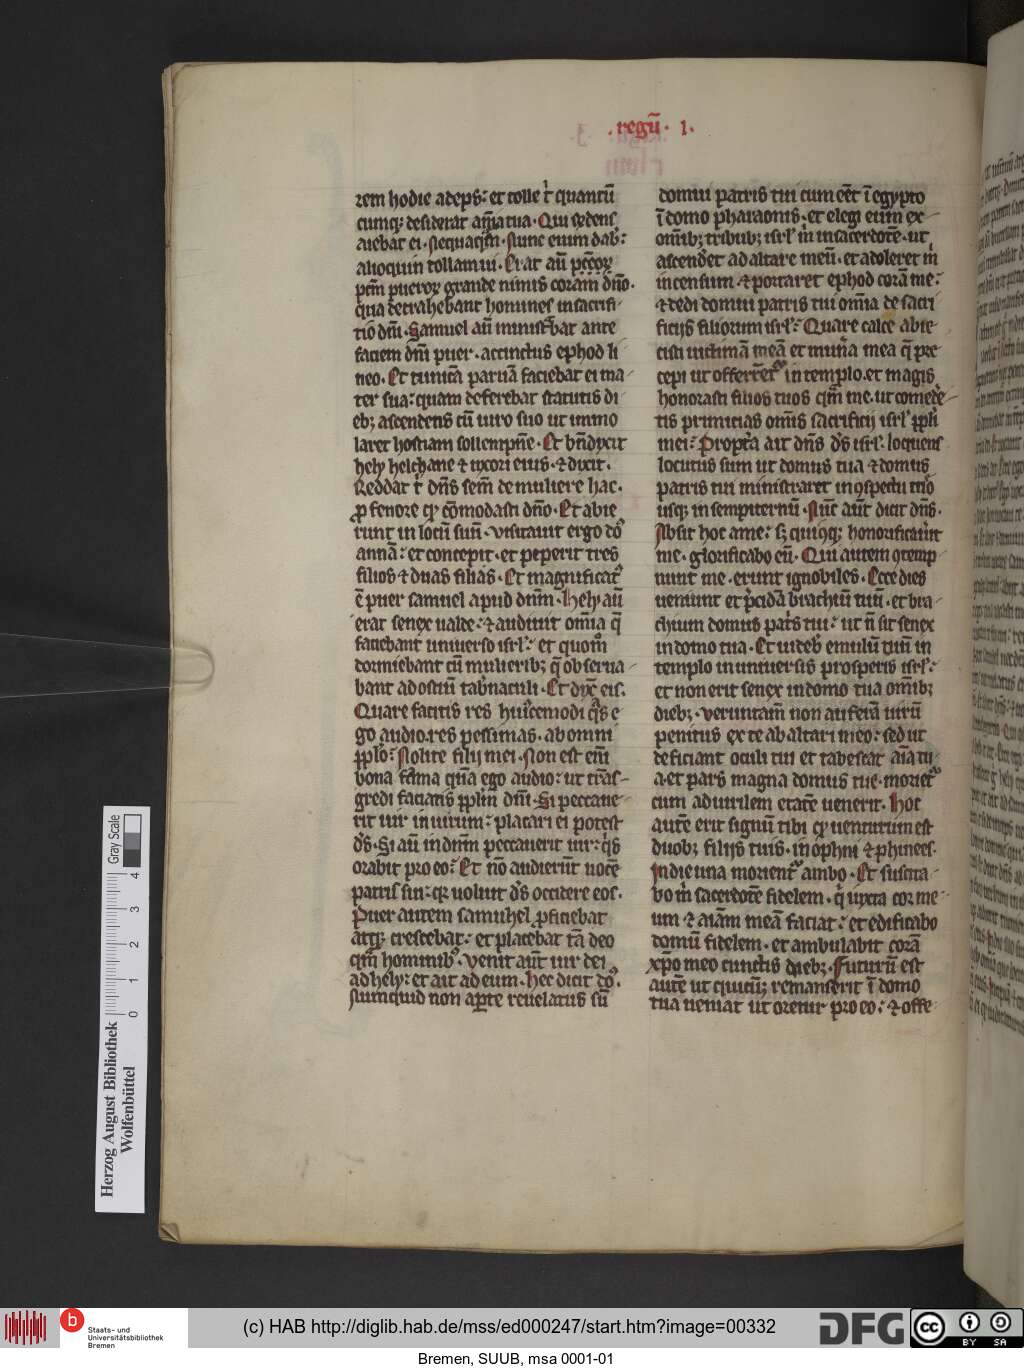 .regū. 1.
rem hodie adeps: et tolle t̍ quantū
cunq; desiderat aīa tua. Qui r̄dens
aiebat ei. Nequaq̄m. Nunc enim dab̄:
alioquin tollam ui. Erat aū pc̄cōꝝ
pc̄m pueroꝝ grande nimis coram dn̄o.
quia detrahebant homines insacrifi-
tio dn̄i. Samuel aū ministrabat ante
faciem dn̄i puer. accinctus ephod li
neo. Et tunicā paruā faciebat ei ma-
ter sua: quam deferebat statutis di
eb; ascendens cū uiro suo ut immo
laret hostiam sollempne. Et bn̄dyxit
hely helchane ⁊ uxori eius. ⁊ dyxit.
Reddat t̍ dn̄s sem̄ de muliere hac.
ꝓ fenore qd̄ cōmodasti dn̄o. Et abie
runt in locū suū. Visitauit ergo dn̄s
annā: et concepit. et peperit tres
filios ⁊ duas filias. Et magnificat᷒
ē puer samuel apud dn̄m. Hely aū
erat senex ualde: ⁊ audiuit om̄ia q̄
faciebant uniuerso isrl̄: et quom̊
dormiebant cū mulierib; q̄ obserua-
bant ad ostiū tab̄naculi. Et dyx̄ eis.
Quare facitis res huiꝰcemodi q̄s e
go audio. res pessimas. ab omni
pp̄lo: Nolite filij mei. Non est eni̅
bona fama quā ego audio: ut trās-
gredi faciatis pp̄lm dn̄i. Si peccaue-
rit uir in uirum: placari ei potest
ds̄. Si aū in dn̄m peccauerit uir: qis
orabit pro eo: Et nō audierūt uocē
patris sui: qz uoluit ds̄ occidere eos.
Puer autem samuhel ꝓficiebat
atq; crescebat: et placebat tā deo
q̄m hominib᷒. Venit aūt uir dei
ad hely: et ait ad eum. Hec dicit dn̄s.
Numquid non aꝑte reuelatus sū
domui patris tui cum eēt ī egypto
ī domo pharaonis. et elegi eum ex-
om̄ib; tribub; isrl̄ m̍ in sacerdotē. ut
ascendet ad altare meū. et adoleret m̍
incensum. ⁊ portaret ephod corā me:
⁊ dedi domui patris tui om̄ia de sacri
ficijs filiorum isrl̄: Quare calce abie-
cisti uictimā meā et mun̄a mea q̄ pre
cepi ut offerrēt᷒ in templo. et magis
honorasti filios tuos q̄m me. ut comedē-
tis primicias om̄is sacrificij isrl̄ pp̄li
mei: Propt̄a ait dn̄s ds̄ isrl̄: loquens
locutus sum ut domus tua ⁊ domus
patris tui ministraret in ꝯspectu mō
usq; in sempiternū. Nūc aūt dicit dn̄s.
Absit hoc a me: s; quicūq; honorificauit
me. glorificabo eū. Qui autem ꝯtemp-
nunt me. erunt ignobiles. Ecce dies
ueniunt et p̄cidā brachiū tuū. et bra-
chium domus pat̄s tui: ut n̄ sit senex
in domo tua. Et uideb̄ emulū tuū in
templo in uniuersis prosperis isrl̄:
et non erit senex in domo tua om̄ib;
dieb;. Veruntam̄ non auferā uirū
penitus ex te ab altari meo: sed ut
deficiant oculi tui et tabescat aīa tu-
a. et pars magna domus tue. moriet᷒
cum ad uirilem etatē uenerit. Hoc
autē erit signū tibi qd̄ uenturum est
duob; filijs tuis. in ophni ⁊ phinees.
In die una morient᷒ ambo. Et suscita-
bo m̍ sacerdotē fidelem. q̍ iuxta cor me-
um ⁊ aīam meā faciat: et edificabo
domū fidelem. et ambulabit corā
xp̄o meo cunctis dieb;. Futurū est
autē ut quicūq; remanserit ī domo
tua ueniat ut oretur pro eo: ⁊ offe-
Herzog August Bibliothek
Wolfenbüttel
Gray Scale
0 1 2 3 4
b
Staats- und
Universitätsbibliothek
Bremen
(c) HAB http://diglib.hab.de/mss/ed000247/start.htm?image=00332
DFG
cc
BY SA
Bremen, SUUB, msa 0001-01